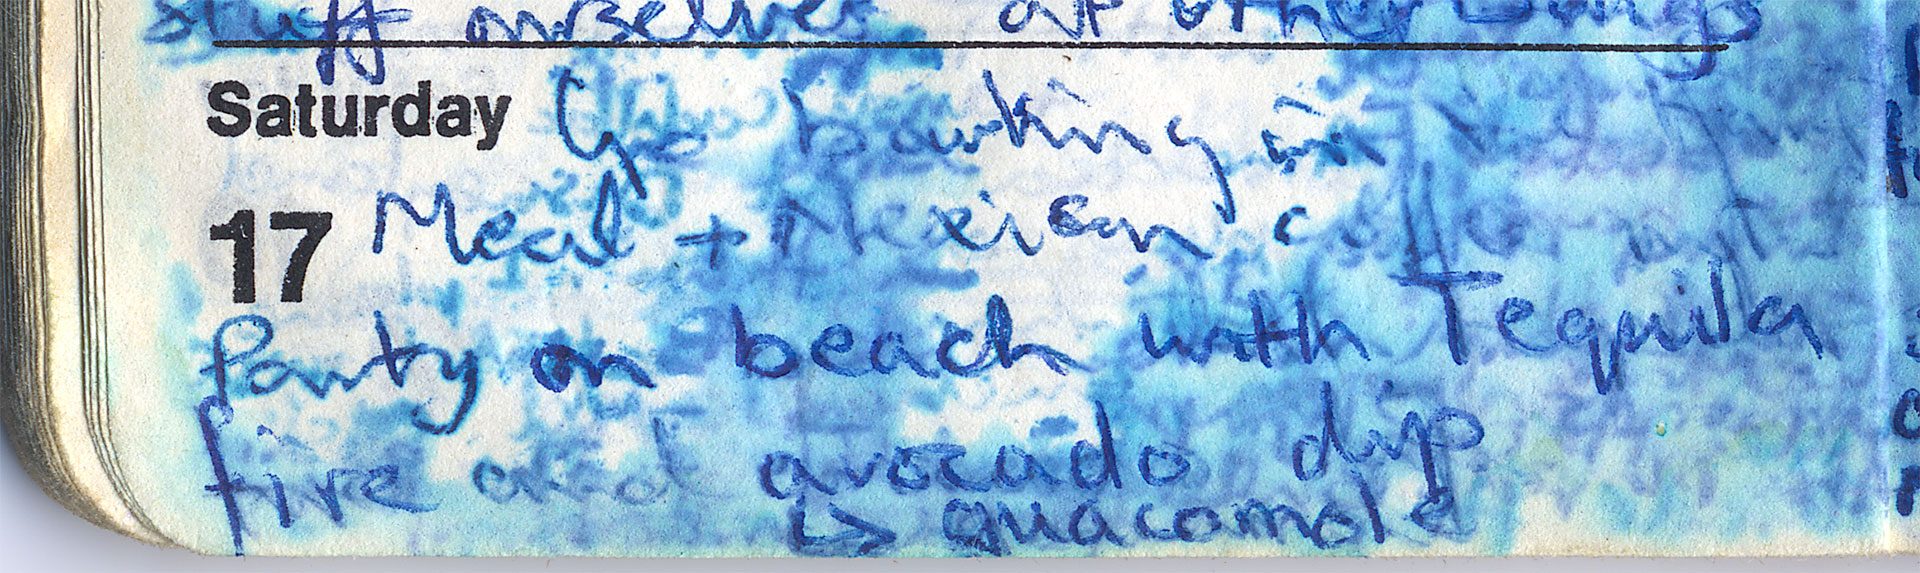 stuff ourselves at other
Saturday Go barking in
17 Meal + Mexican
Party on beach with Tequila
fire and avocado dip
↳ guacamole